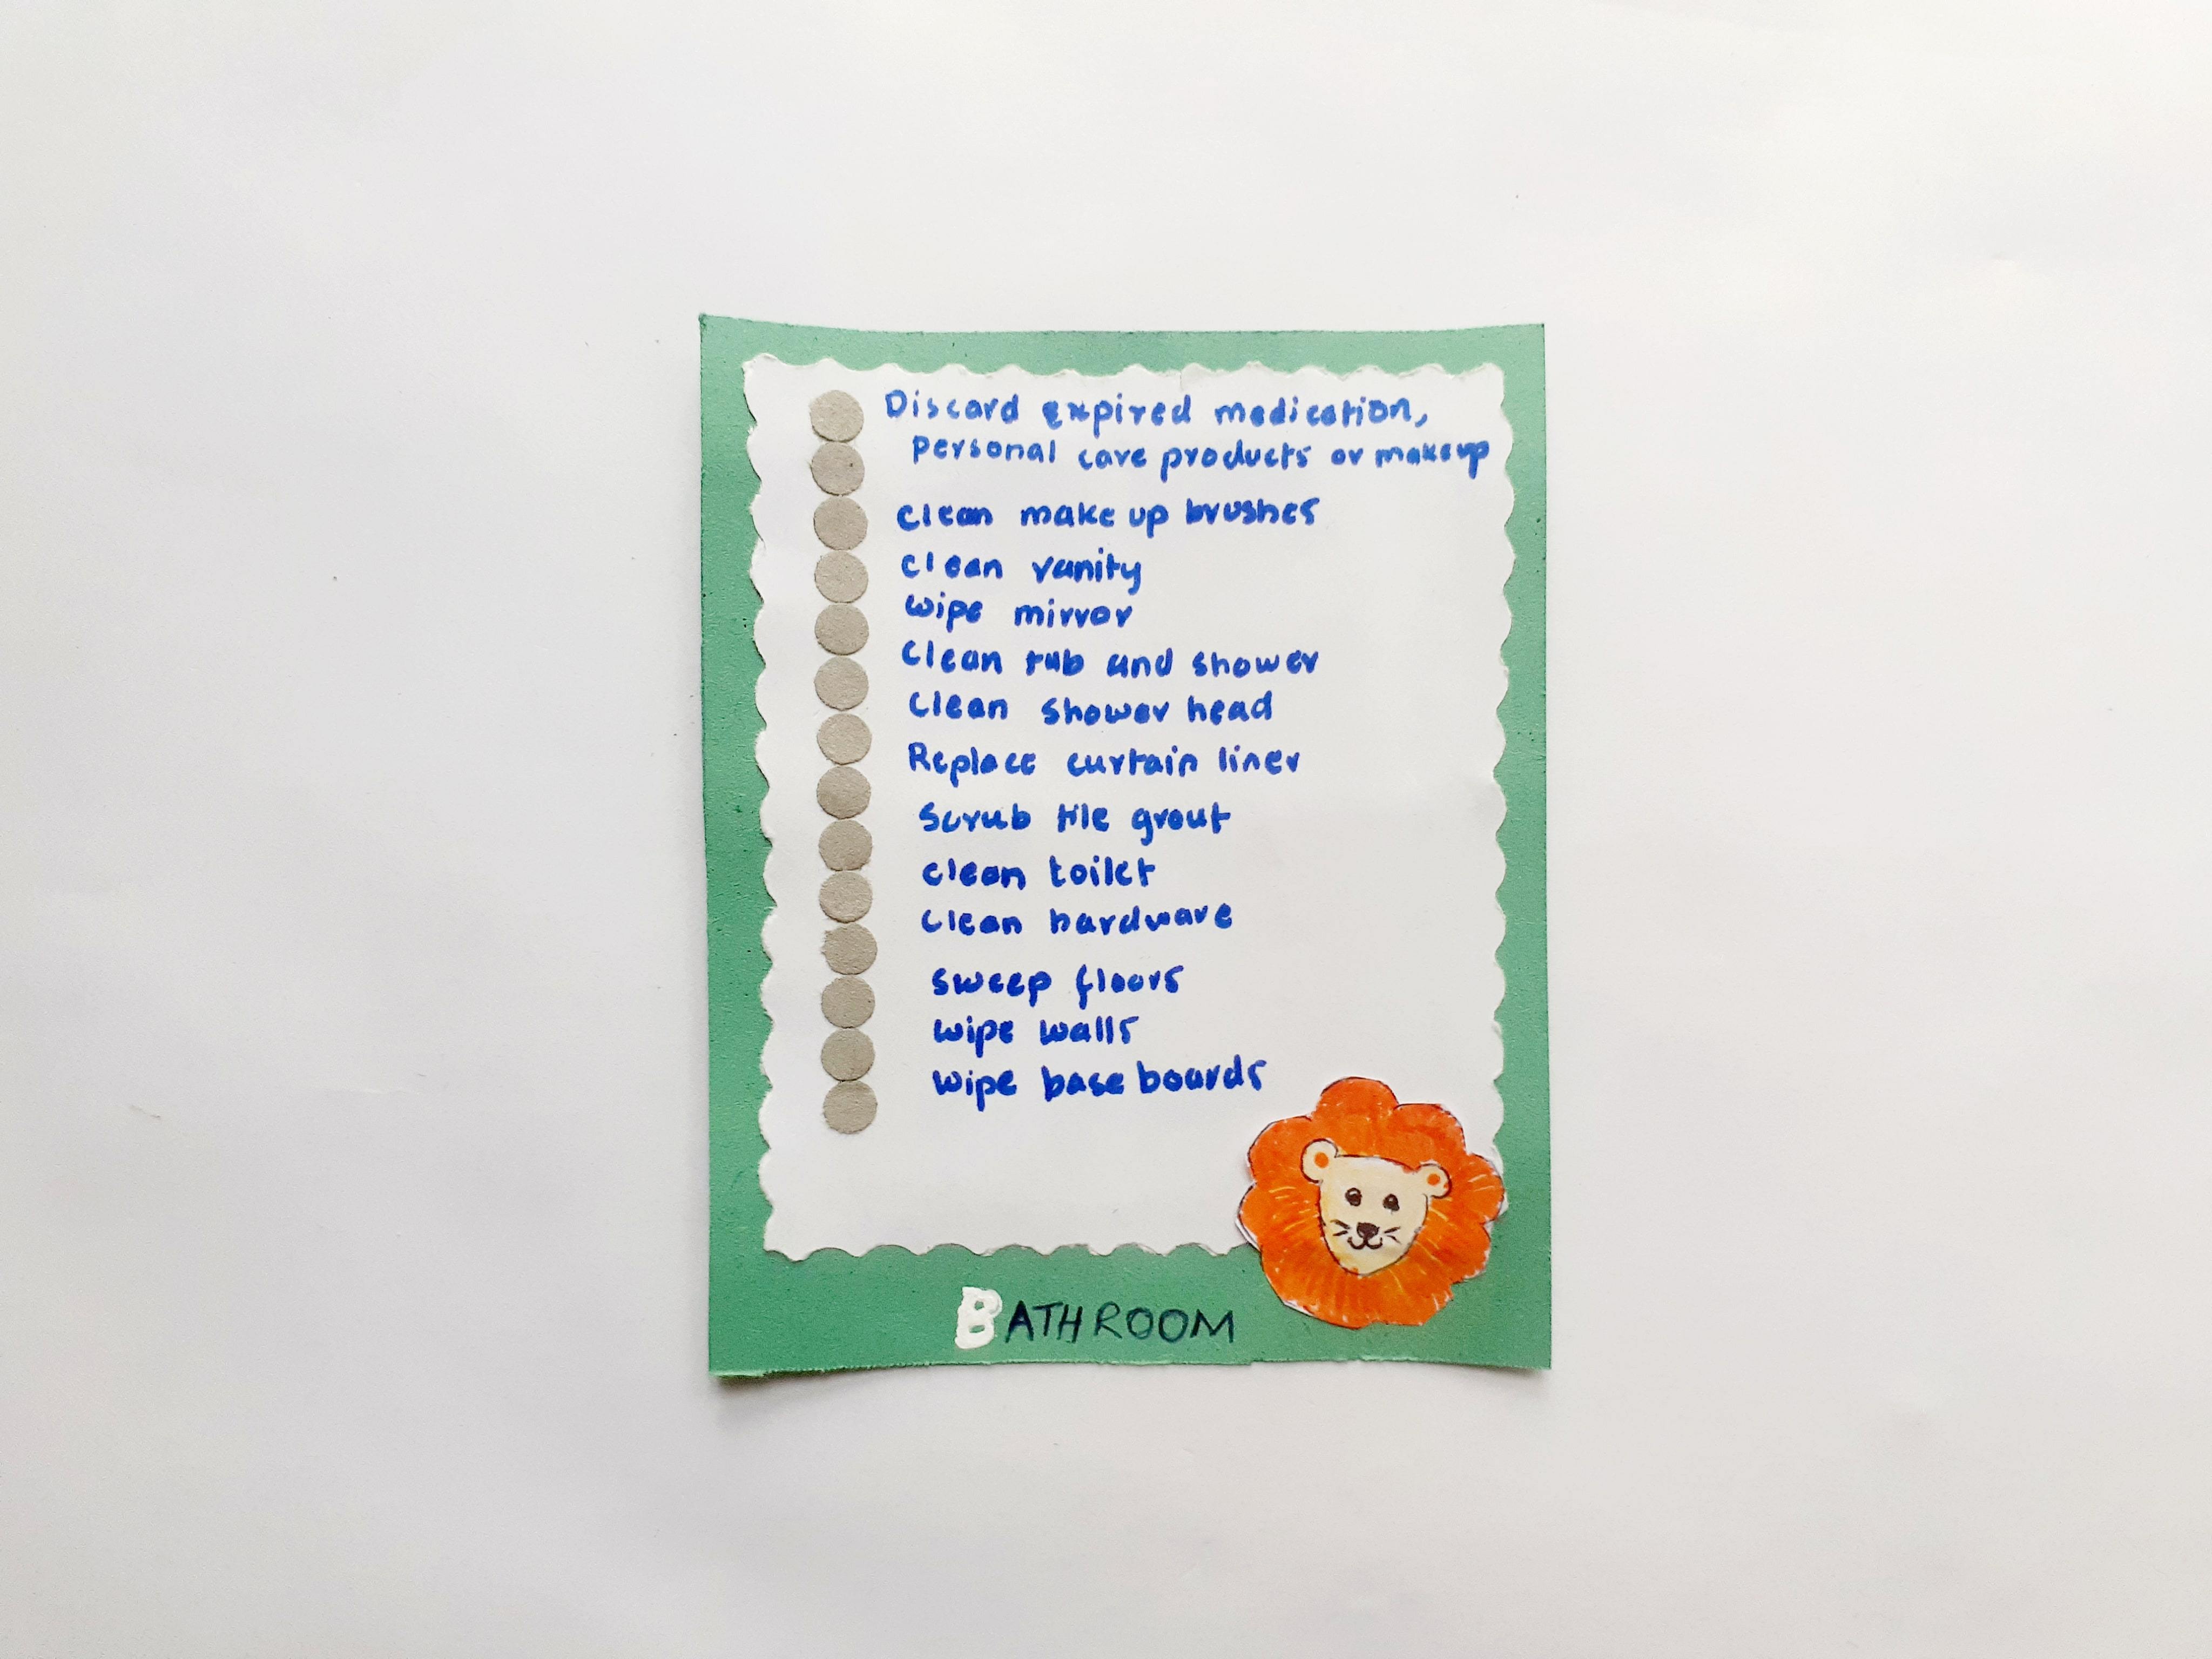 Discard expired medication,
personal care products or makeup
clean make up brushes
clean vanity
wipe mirror
clean tub and shower
clean shower head
Replace curtain liner
Scrub tile grout
clean toilet
clean hardware
sweep floors
wipe walls
wipe base boards
BATHROOM